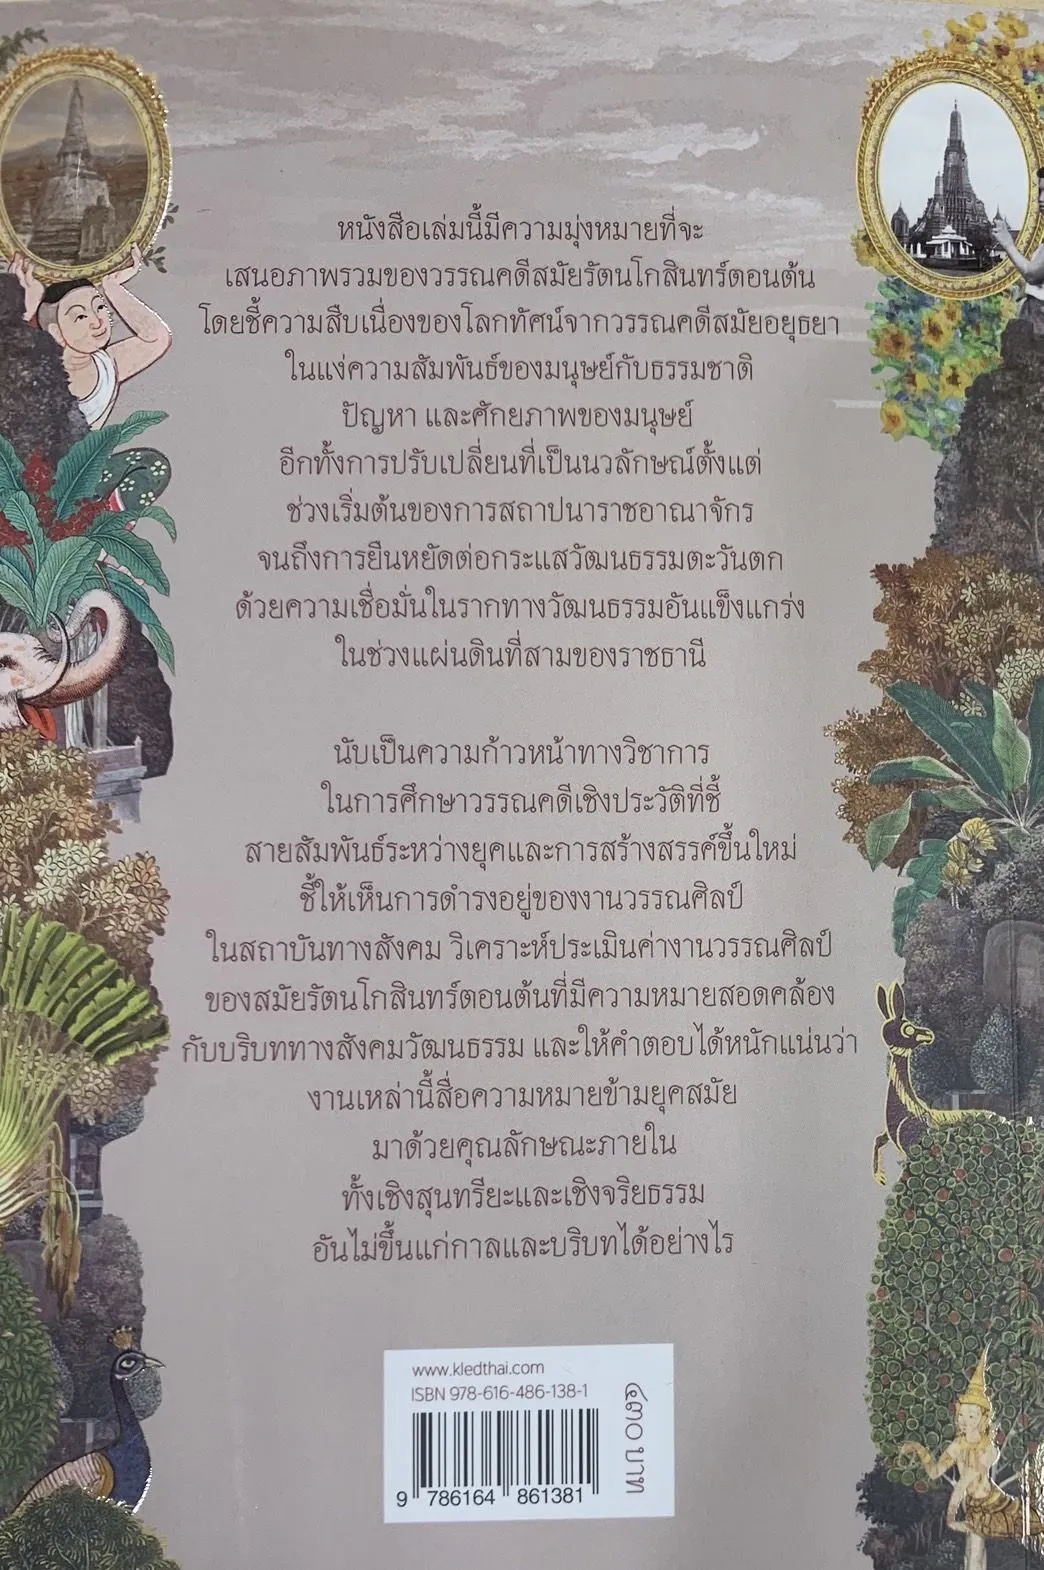 หนังสือเล่มนี้มีความมุ่งหมายที่จะ
เสนอภาพรวมของวรรณคดีสมัยรัตนโกสินทร์ตอนต้น
โดยชี้ความสืบเนื่องของโลกทัศน์จากวรรณคดีสมัยอยุธยา
ในแง่ความสัมพันธ์ของมนุษย์กับธรรมชาติ
ปัญหา และศักยภาพของมนุษย์
อีกทั้งการปรับเปลี่ยนที่เป็นนวลักษณ์ตั้งแต่
ช่วงเริ่มต้นของการสถาปนาราชอาณาจักร
จนถึงการยืนหยัดต่อกระแสวัฒนธรรมตะวันตก
ด้วยความเชื่อมั่นในรากทางวัฒนธรรมอันแข็งแกร่ง
ในช่วงแผ่นดินที่สามของราชธานี
นับเป็นความก้าวหน้าทางวิชาการ
ในการศึกษาวรรณคดีเชิงประวัติที่ชี้
สายสัมพันธ์ระหว่างยุคและการสร้างสรรค์ขึ้นใหม่
ชี้ให้เห็นการดำรงอยู่ของงานวรรณศิลป์
ในสถาบันทางสังคม วิเคราะห์ประเมินค่างานวรรณศิลป์
ของสมัยรัตนโกสินทร์ตอนต้นที่มีความหมายสอดคล้อง
กับบริบททางสังคมวัฒนธรรม และให้คำตอบได้หนักแน่นว่า
งานเหล่านี้สื่อความหมายข้ามยุคสมัย
มาด้วยคุณลักษณะภายใน
ทั้งเชิงสุนทรียะและเชิงจริยธรรม
อันไม่ขึ้นแก่กาลและบริบทได้อย่างไร
www.kledthai.com
ISBN 978-616-486-138-1
9 786164 861381
๔๓๐ บาท